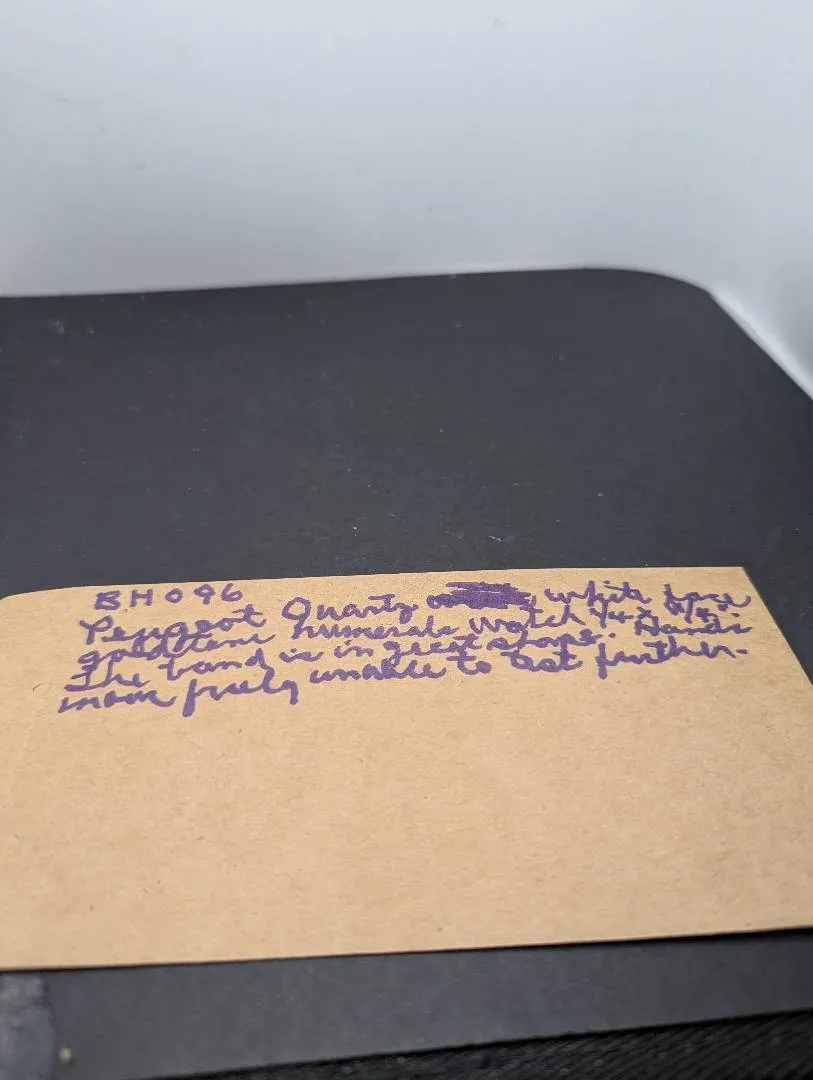 BH096
Peugeot Quartz white face
goldtone numerals watch
The band is in great shape. Hands
move freely unable to test further.